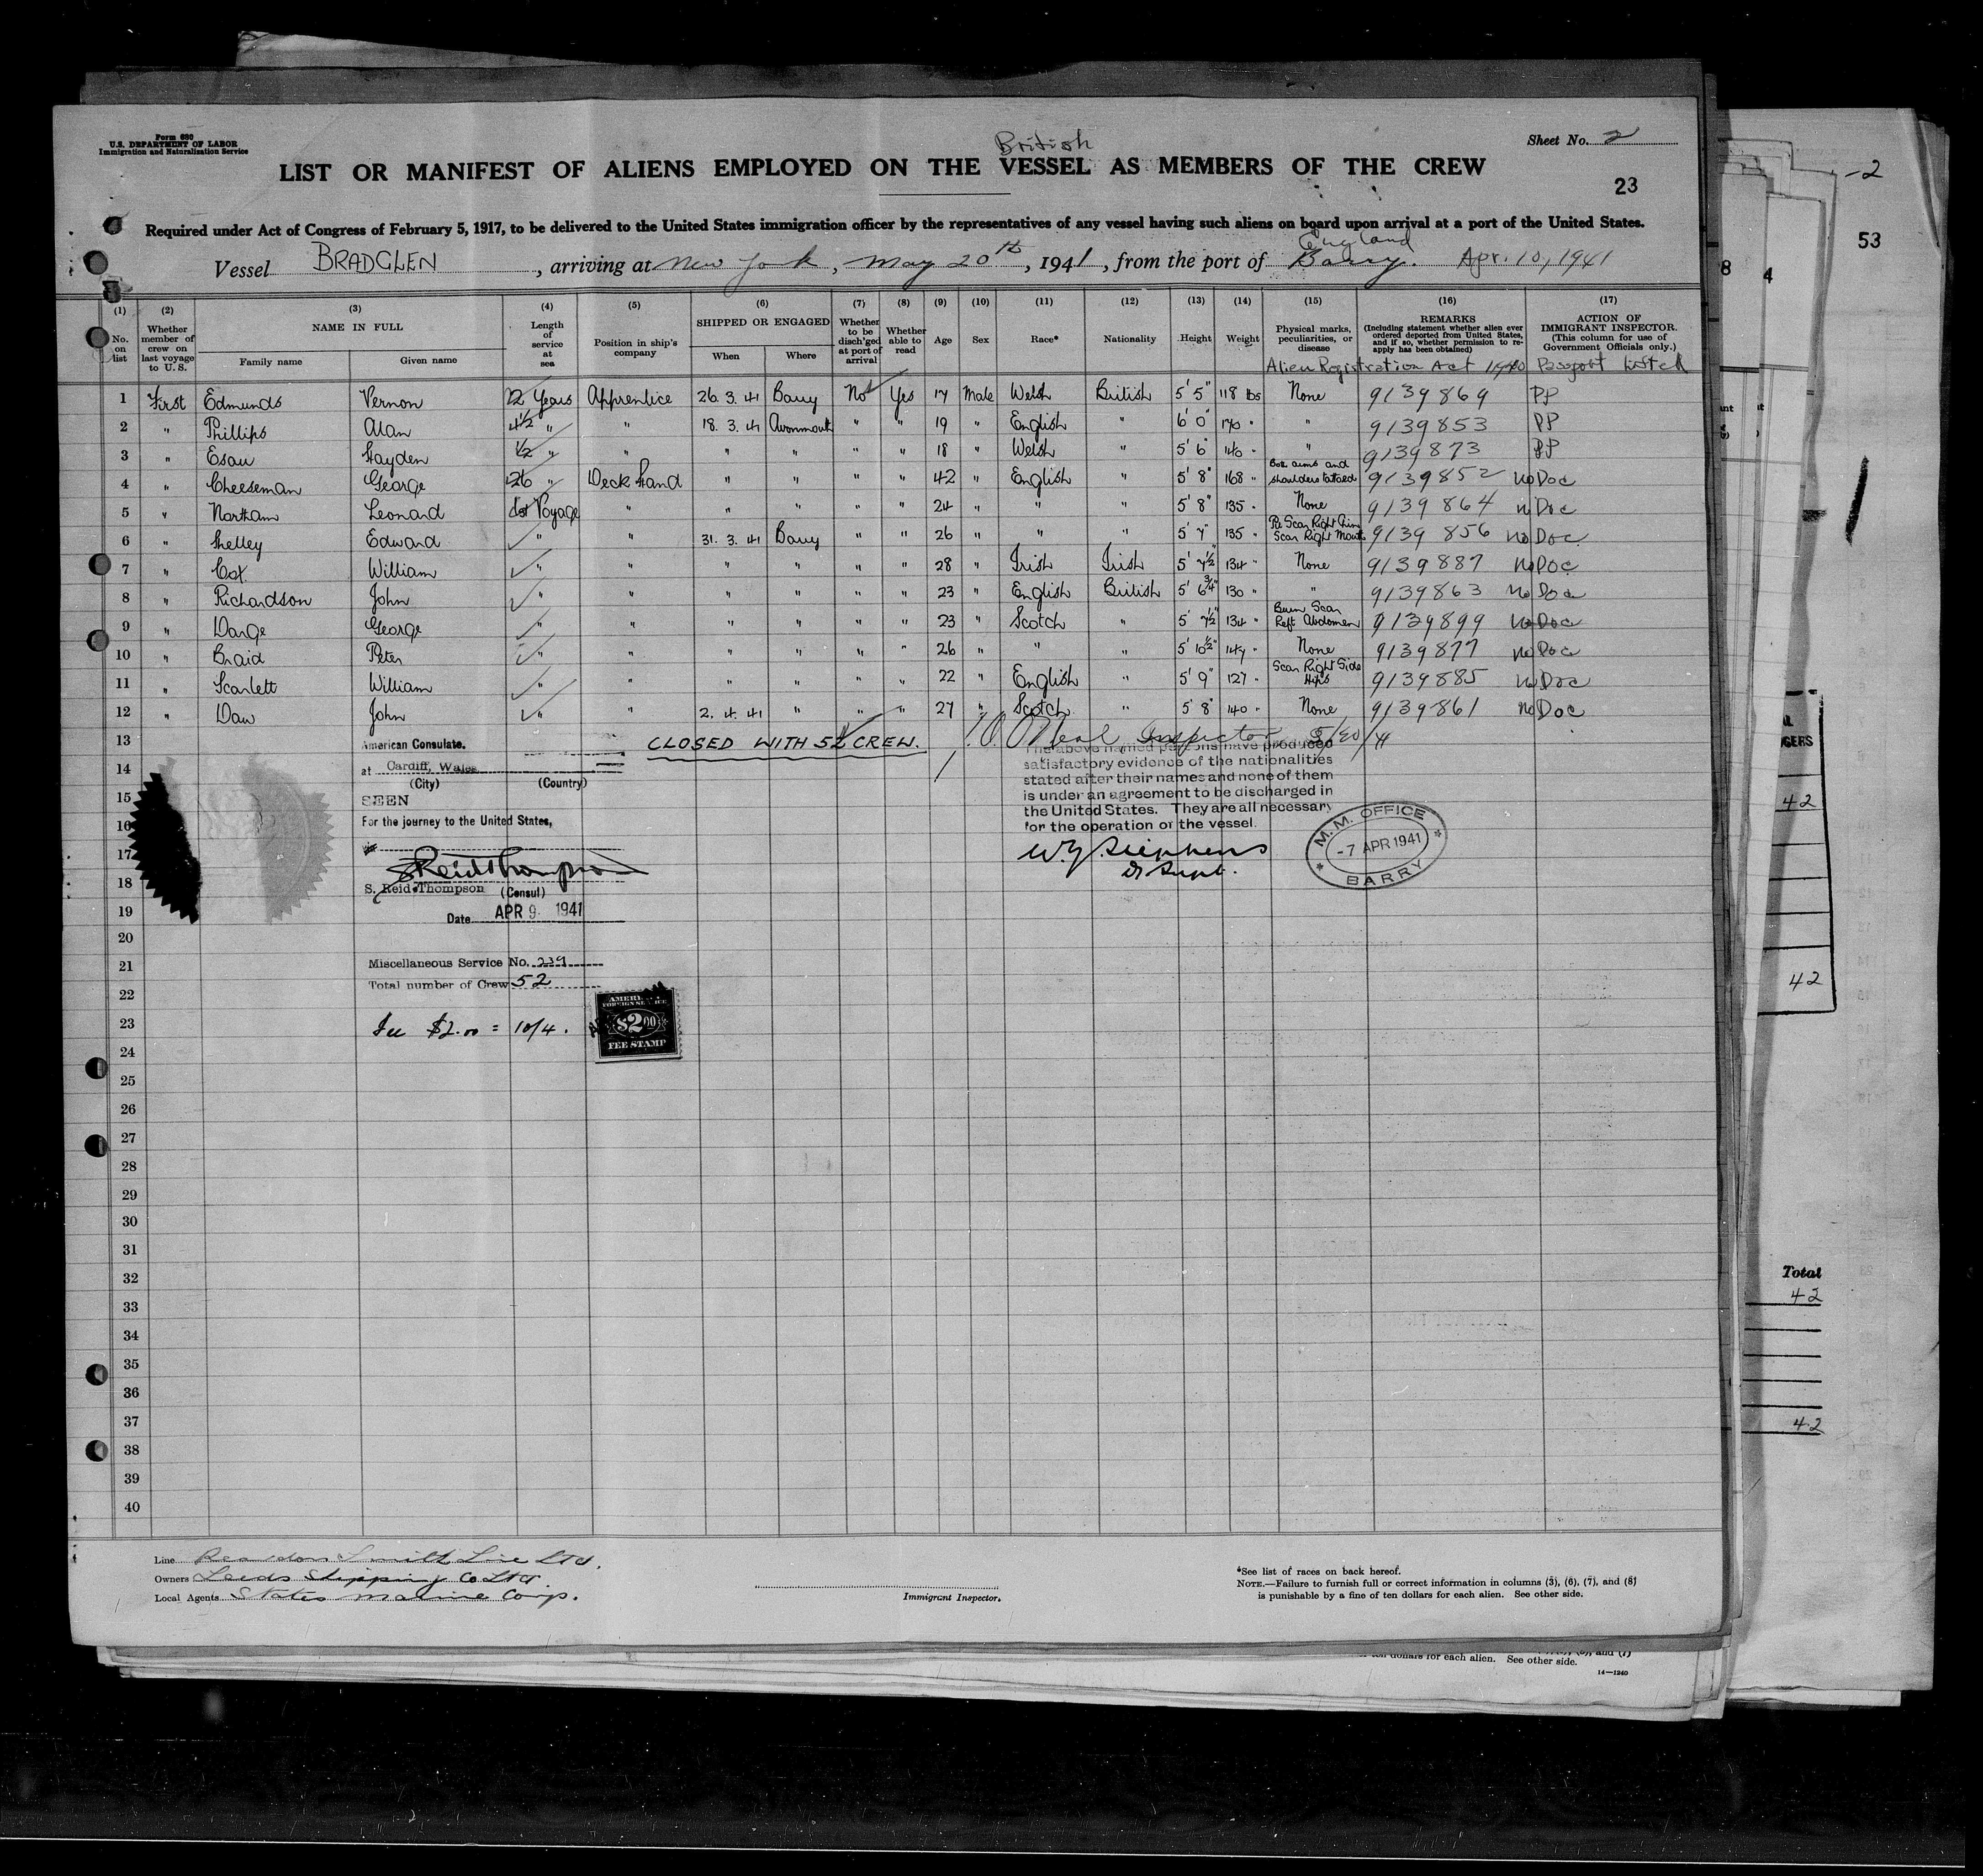 Form 680
U.S. DEPARTMENT OF LABOR
Immigration and Naturalization Service
Sheet No. 2
British
LIST OR MANIFEST OF ALIENS EMPLOYED ON THE VESSEL AS MEMBERS OF THE CREW
23
Required under Act of Congress of February 5, 1917, to be delivered to the United States immigration officer by the representatives of any vessel having such aliens on board upon arrival at a port of the United States.
England
Vessel BRADGLEN, arriving at New York, May 20th, 1941, from the port of Barry. Apr. 10, 1941
(1) (2) (3) (4) (5) (6) (7) (8) (9) (10) (11) (12) (13) (14) (15) (16) (17)
No. on list
Whether member of crew on last voyage to U. S.
NAME IN FULL
Family name Given name
Length of service at sea
Position in ship's company
SHIPPED OR ENGAGED
When Where
Whether to be disch'ged at port of arrival
Whether able to read
Age Sex Race* Nationality Height Weight
Physical marks, peculiarities, or disease
REMARKS (Including statement whether alien ever ordered deported from United States, and if so, whether permission to re-apply has been obtained)
ACTION OF IMMIGRANT INSPECTOR. (This column for use of Government Officials only.)
Alien Registration Act 1940 Passport listed
1 First Edmunds Vernon 2 Years Apprentice 26. 3. 41 Barry No Yes 17 Male Welsh British 5' 5" 118 lbs None 9139869 PP
2 " Phillips Alan 4½ " " 18. 3. 41 Avonmouth " " 19 " English " 6' 0" 170 " " 9139853 PP
3 " Esau Hayden ½ " " " " " " 18 " Welsh " 5' 6" 140 " " 9139873 PP
4 " Cheeseman George 26 " Deck Hand " " " " 42 " English " 5' 8" 168 " Both arms and shoulders tattooed 9139852 no Doc
5 " Northam Leonard 1st Voyage " " " " " 24 " " " 5' 8" 135 " None 9139864 no Doc
6 " Shelley Edward " " 31. 3. 41 Barry " " 26 " " " 5' 7" 135 " Scar Right Scar Right Mouth 9139856 no Doc
7 " Cox William " " " " " " 28 " Irish Irish 5' 7½" 134 " None 9139887 no Doc
8 " Richardson John " " " " " " 23 " English British 5' 6¾" 130 " " 9139863 no Doc
9 " Darge George " " " " " " 23 " Scotch " 5' 7½" 134 " Burn Scar Left Abdomen 9139899 no Doc
10 " Braid Peter " " " " " " 26 " " " 5' 10½" 149 " None 9139877 no Doc
11 " Scarlett William " " " " " " 22 " English " 5' 9" 127 " Scar Right Side Hips 9139885 no Doc
12 " Daw John " " 2. 4. 41 " " " 27 " Scotch " 5' 8" 140 " None 9139861 no Doc
13 American Consulate. CLOSED WITH 52 CREW. O'Neal Inspector 5/20/41
The above named persons have produced
satisfactory evidence of the nationalities
stated after their names and none of them
is under an agreement to be discharged in
the United States. They are all necessary
for the operation of the vessel.
W.J. Stephens
D/ Supt.
M. M. OFFICE
-7 APR 1941
BARRY
14 at Cardiff, Wales
(City) (Country)
15 SEEN
16 For the journey to the United States,
17 S Reid Thompson
18 S. Reid Thompson (Consul)
19 Date APR 9 1941
20
21 Miscellaneous Service No. 239
Total number of Crew 52
22
23 Fee $2.00 = 10/4.
AMERICAN
FOREIGN SERVICE
$2.00
FEE STAMP
24
25
26
27
28
29
30
31
32
33
34
35
36
37
38
39
40
Line Reardon Smith Line Ltd.
Owners Leeds Shipping Co Ltd.
Local Agents States Marine Corp.
Immigrant Inspector.
*See list of races on back hereof.
NOTE.—Failure to furnish full or correct information in columns (3), (6), (7), and (8)
is punishable by a fine of ten dollars for each alien. See other side.
ten dollars for each alien. See other side.
14—1240
-2
53
8 4
42
42
Total
42
42